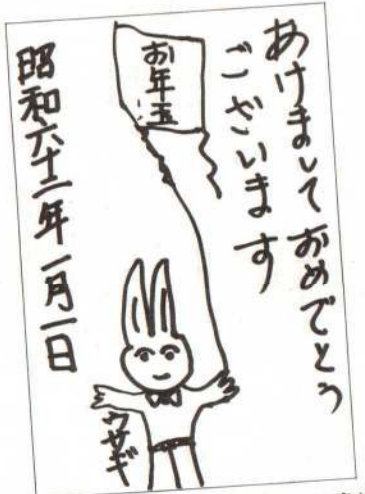 あけまして おめでとう
ございます
お年玉
ウサギ
昭和六十二年一月一日